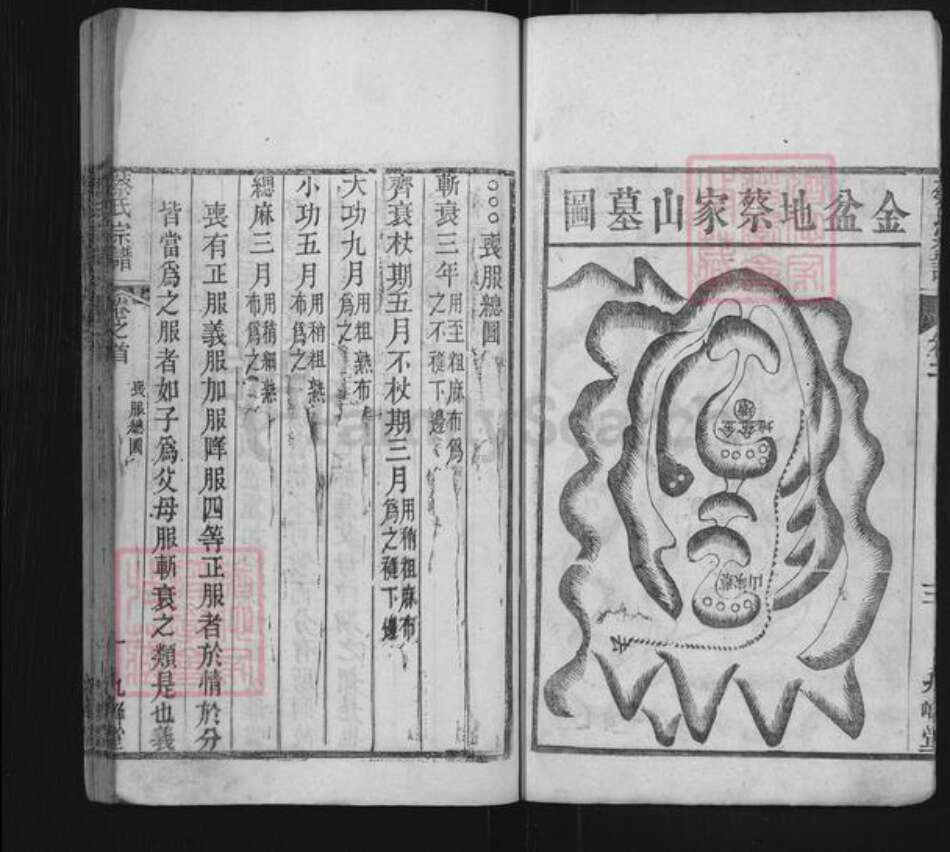 金盆地蔡家山墓圖
金盆地
蔡家山
九峰堂
○○○喪服總圖
斬衰三年用至粗麻布爲之不緶下邊
齊衰杖期五月不杖期三月用稍粗麻布爲之緶下邊
大功九月用粗熟布爲之
小功五月用稍粗熟布爲之
緦麻三月用稍細熟布爲之
喪有正服義服加服降服四等正服者於情於分
皆當爲之服者如子爲父母服斬衰之類是也義
蔡氏宗譜 卷之首 喪服總圖 一 九峰堂
FamilySearch